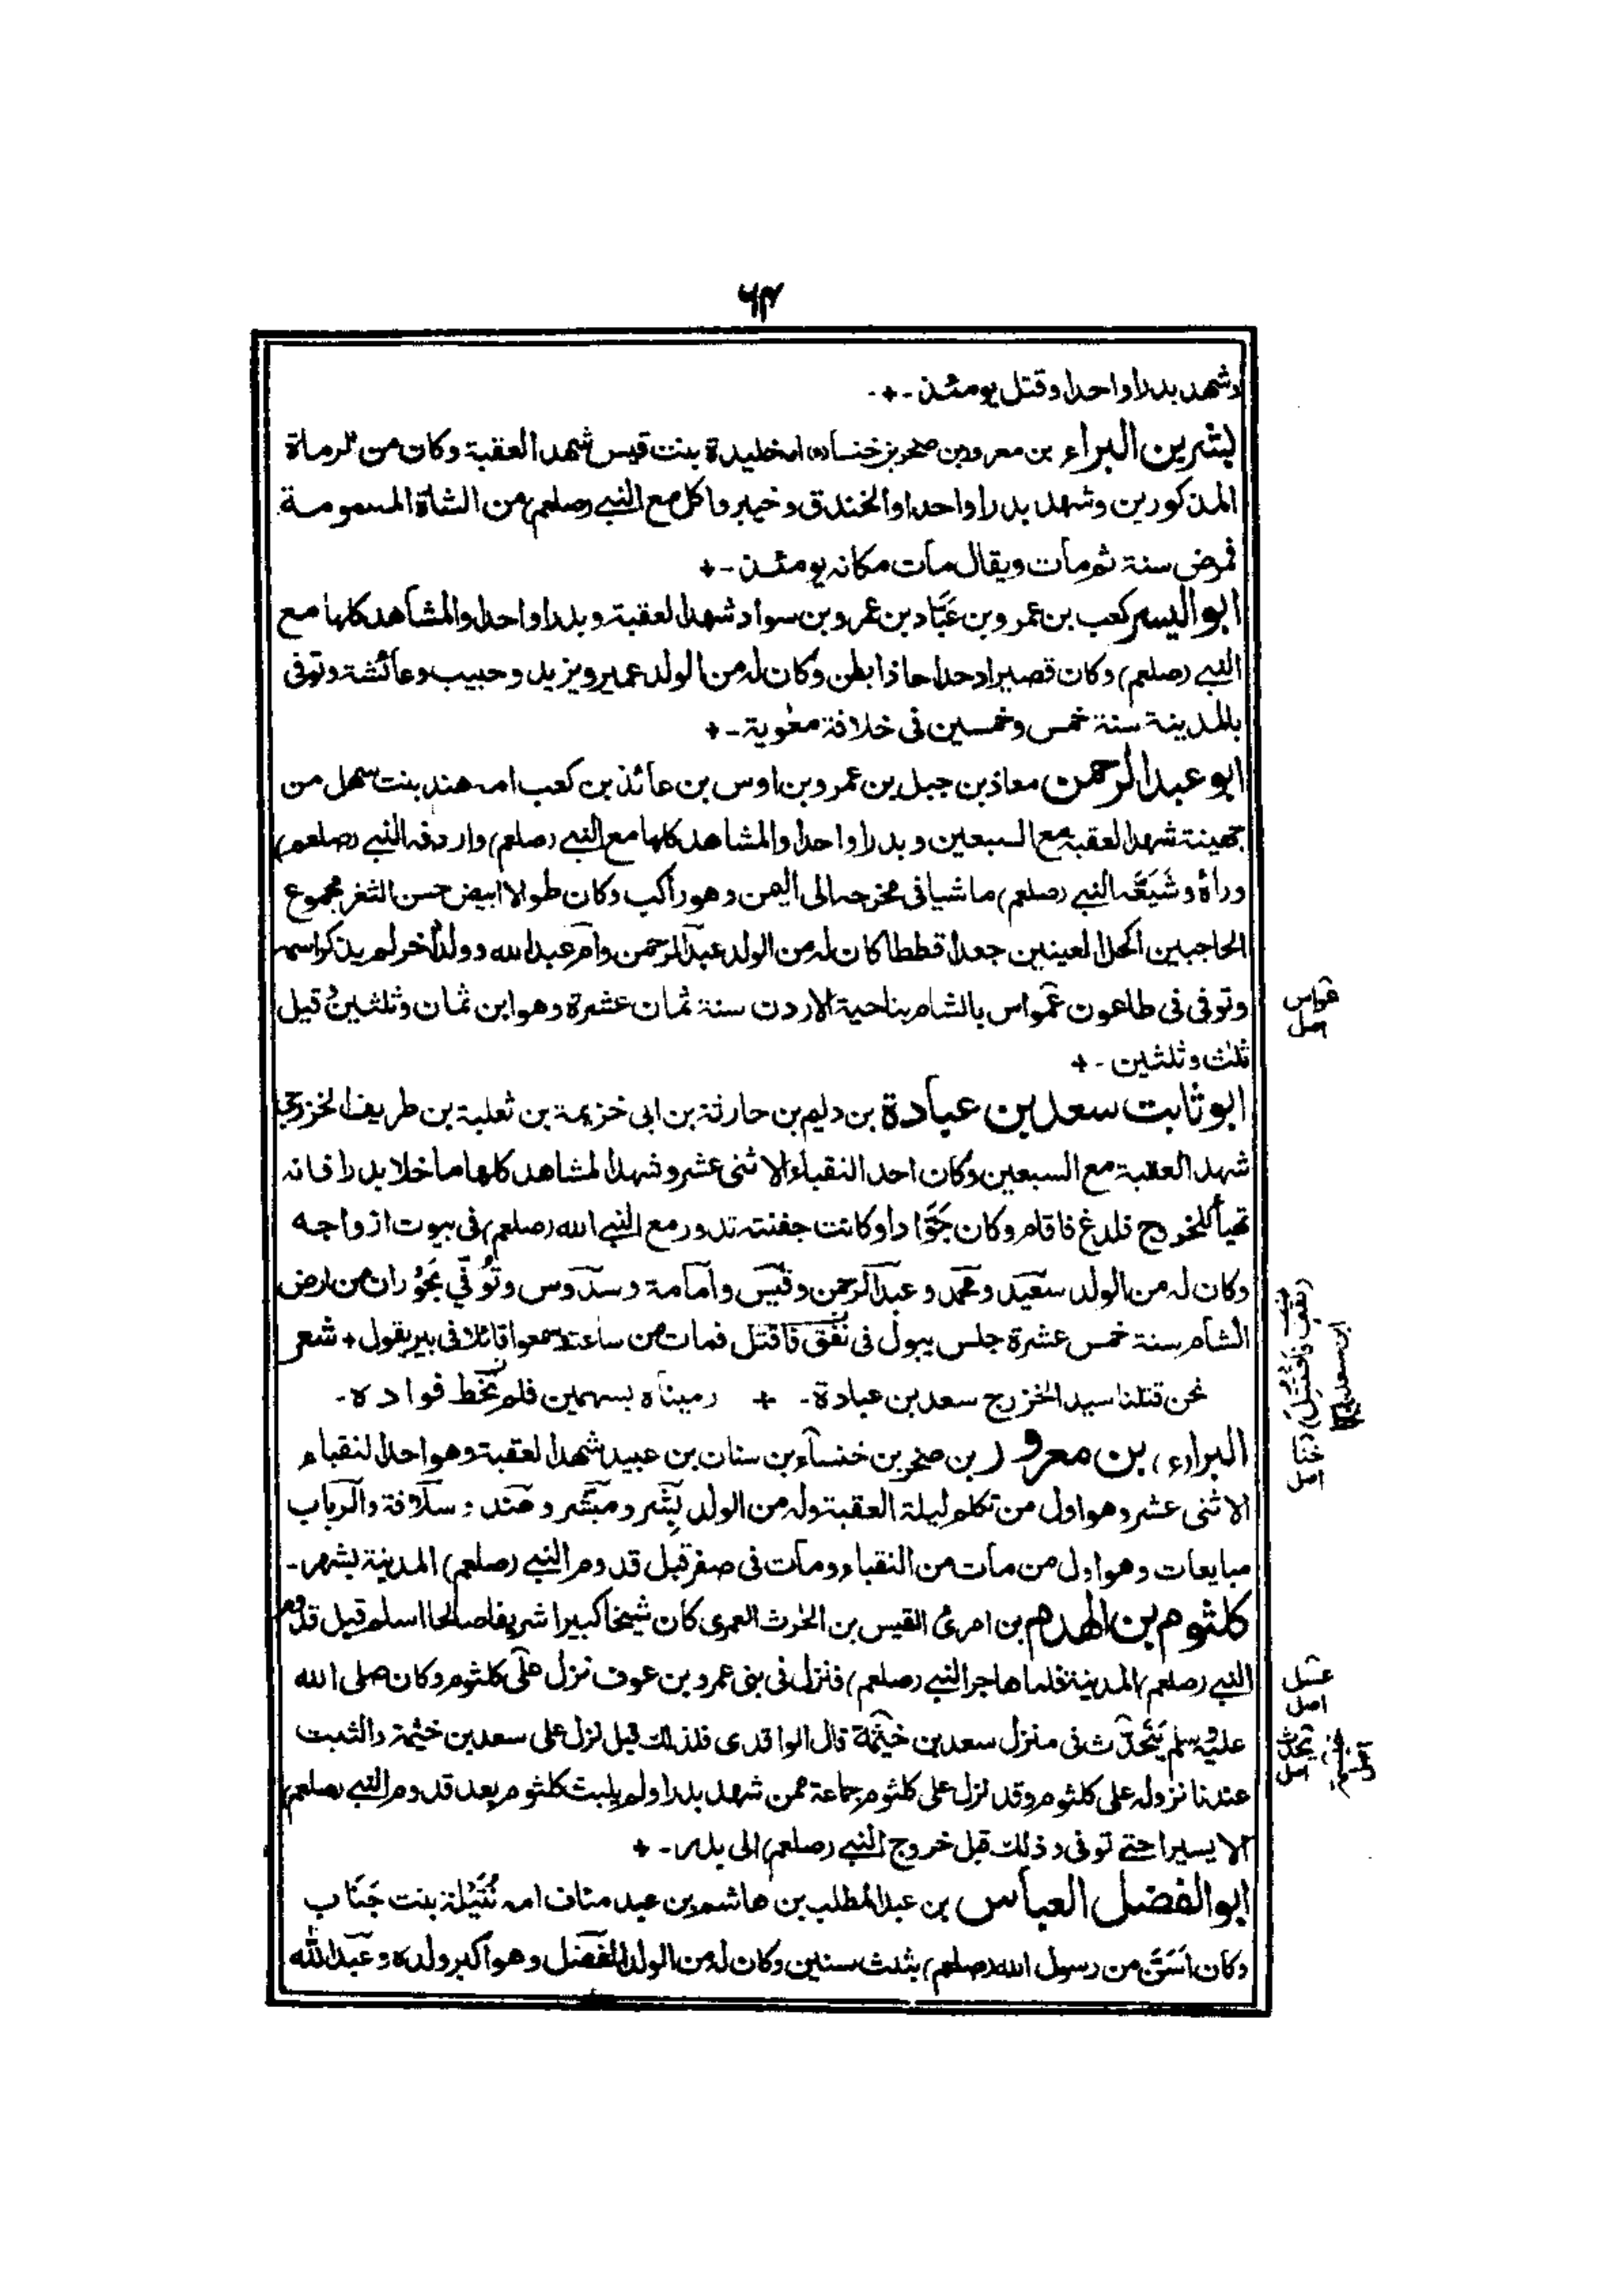 ۶۴
وشهد بدرا واحدا وقتل يومئذ -+-
بشر بن البراء بن معرور بن صخر بن خنساء امه خليدة بنت قيس شهد العقبة وكان من الرماة
المذكورين وشهد بدرا واحدا والخندق وخيبر واكل مع النبي (صلعم) من الشاة المسمومة
فمرض سنة ثم مات ويقال مات مكانه يومئذ -+
ابو اليسر كعب بن عمرو بن عَبَّاد بن عمرو بن سواد شهد العقبة وبدرا واحدا والمشاهد كلها مع
النبي (صلعم) وكان قصيرا دحداحا ذا بطن وكان له من الولد عمير ويزيد وحبيب وعائشة وتوفى
بالمدينة سنة خمس وخمسين فى خلافة معٰوية -+
ابو عبد الرحمن معاذ بن جبل بن عمرو بن اوس بن عائذ بن كعب امه هند بنت سهل من
جهينة شهد العقبة مع السبعين وبدرا واحدا والمشاهد كلها مع النبي (صلعم) واردفه النبي (صلعم)
وراٰه وشَيَّعَه النبي (صلعم) ماشيا فى مخرجه الى اليمن وهو راكب وكان طوالا ابيض حسن الثغر مجموع
الحاجبين اكحل العينين جعدا قططا كان له من الولد عبد الرحمن وام عبد الله وولد اٰخر لم يذكر اسمه
وتوفى فى طاعون عمواس بالشام بناحية الاردن سنة ثمان عشرة وهو ابن ثمان وثلثين وقيل
ثلٰث وثلثين -+
ابو ثابت سعد بن عبادة بن دليم بن حارثة بن ابى خزيمة بن ثعلبة بن طريف الخزرجي
شهد العقبة مع السبعين وكان احد النقباء الاثنى عشر وشهد المشاهد كلها ما خلا بدرا فانه
تهيأ للخروج فلدغ فاقام وكان جَوَّادا وكانت جفنته تدور مع النبي الله (صلعم) فى بيوت ازواجه
وكان له من الولد سعيد ومحمد وعبد الرحمن وقيس وامامة وسدوس وتُوفّي بحَوْران من ارض
الشام سنة خمس عشرة جلس يبول فى نفق فاقتتل فمات من ساعته سمعوا قائلا فى بير يقول + شعر
نحن قتلنا سيد الخزرج سعد بن عبادة - + رميناه بسهمين فلم نخط فواده -
البراء(ء) بن معرور بن صخر بن خنساء بن سنان بن عبيد شهد العقبة وهو احد النقباء
الاثنى عشر وهو اول من تكلم ليلة العقبة وله من الولد بِشْر ومبشر وهند وسلافة والرباب
مبايعات وهو اول من مات من النقباء ومات فى صفر قبل قدوم النبي (صلعم) المدينة بشهر -
كلثوم بن الهدم بن امرئ القيس بن الحٰرث العمرى كان شيخا كبيرا شريفا صالحا اسلم قبل قدوم
النبي (صلعم) المدينة فلما هاجر النبي (صلعم) فنزل فى بنى عمرو بن عوف نزل على كلثوم وكان صلى الله
عليه وسلم يَتَحَدَّث فى منزل سعد بن خيثمة قال الواقدى فلذلك قيل نزل على سعد بن خيثمة والثبت
عندنا نزوله على كلثوم وقد نزل على كلثوم جماعة ممن شهد بدرا ولم يلبث كلثوم بعد قدوم النبي (صلعم)
الا يسيرا حتى توفى وذلك قبل خروج النبي (صلعم) الى بدر -+
ابو الفضل العباس بن عبد المطلب بن هاشم بن عبد مناف امه نُتَيْلة بنت جَنَاب
وكان اَسَنَّ من رسول الله (صلعم) بثلث سنين وكان له من الولد الفضل وهو اكبر ولده وعبد الله
عمواس
اصل
ابن سعد
اصل
اصل
يحدث
اصل